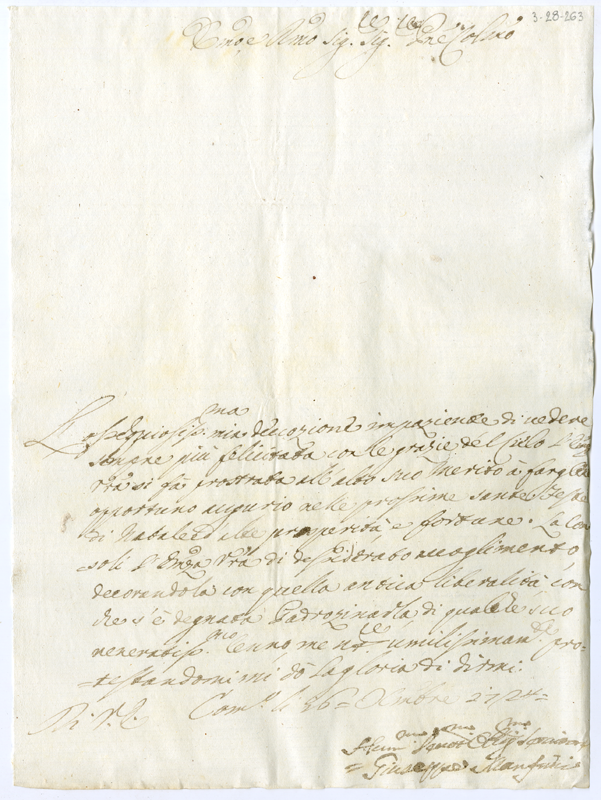 3-28-263
Em.o e R.mo Sig. Sig. P.ne Col.mo
L'ossequiosiss.ma mia devozione impaziente di vedere
sempre più felicitata con le grazie del Cielo l'Em.za
V'ra si fà prostrata all'alto suo merito a fargliene
opportuno augurio nelle prossime sante Feste
di Natale ed altre prosperità e fortune. La con
soli l'Em.za V'ra di desiderato accoglimento
decorandola con quella antica liberalità con
che s'è degnata Padrozinarla di qualche suo
veneratiss.mo Cenno mentre umilissimam.te pro-
=testandomi mi dò la gloria di dirmi.
Di V. E. Cam.o li 26 = Xmbre 1724 =
Hum.mo Devot.mo Oblig.mo
= Giuseppe